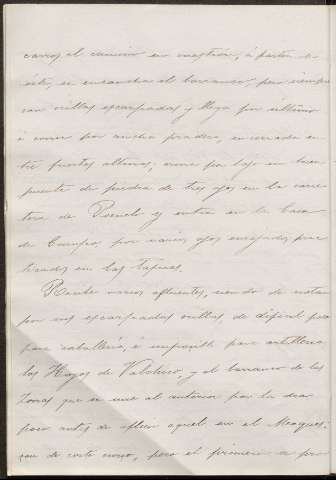 carros el camino en cuestión, á partir de
éste, se ensancha el barranco, pero siempre
con orillas escarpadas y llega por último
á correr por ancha pradera, encerrada en
tre fuertes alturas, corre por bajo un buen
puente de piedra de tres ojos en la carre
tera de Pozuelo y entra en la Casa
de Campo por varios ojos enrejados prac
ticados en las tapias.
Recibe varios afluentes, siendo de notar
por sus escarpadas orillas, de dificil paso
para caballeria, é imposible para artilleria
los Hoyos de Valchico, y el barranco de las
Zorras que se une al anterior por la dra
poco antes de afluir aquel en el Meaques.
son de corto curso, pero el primero a pro